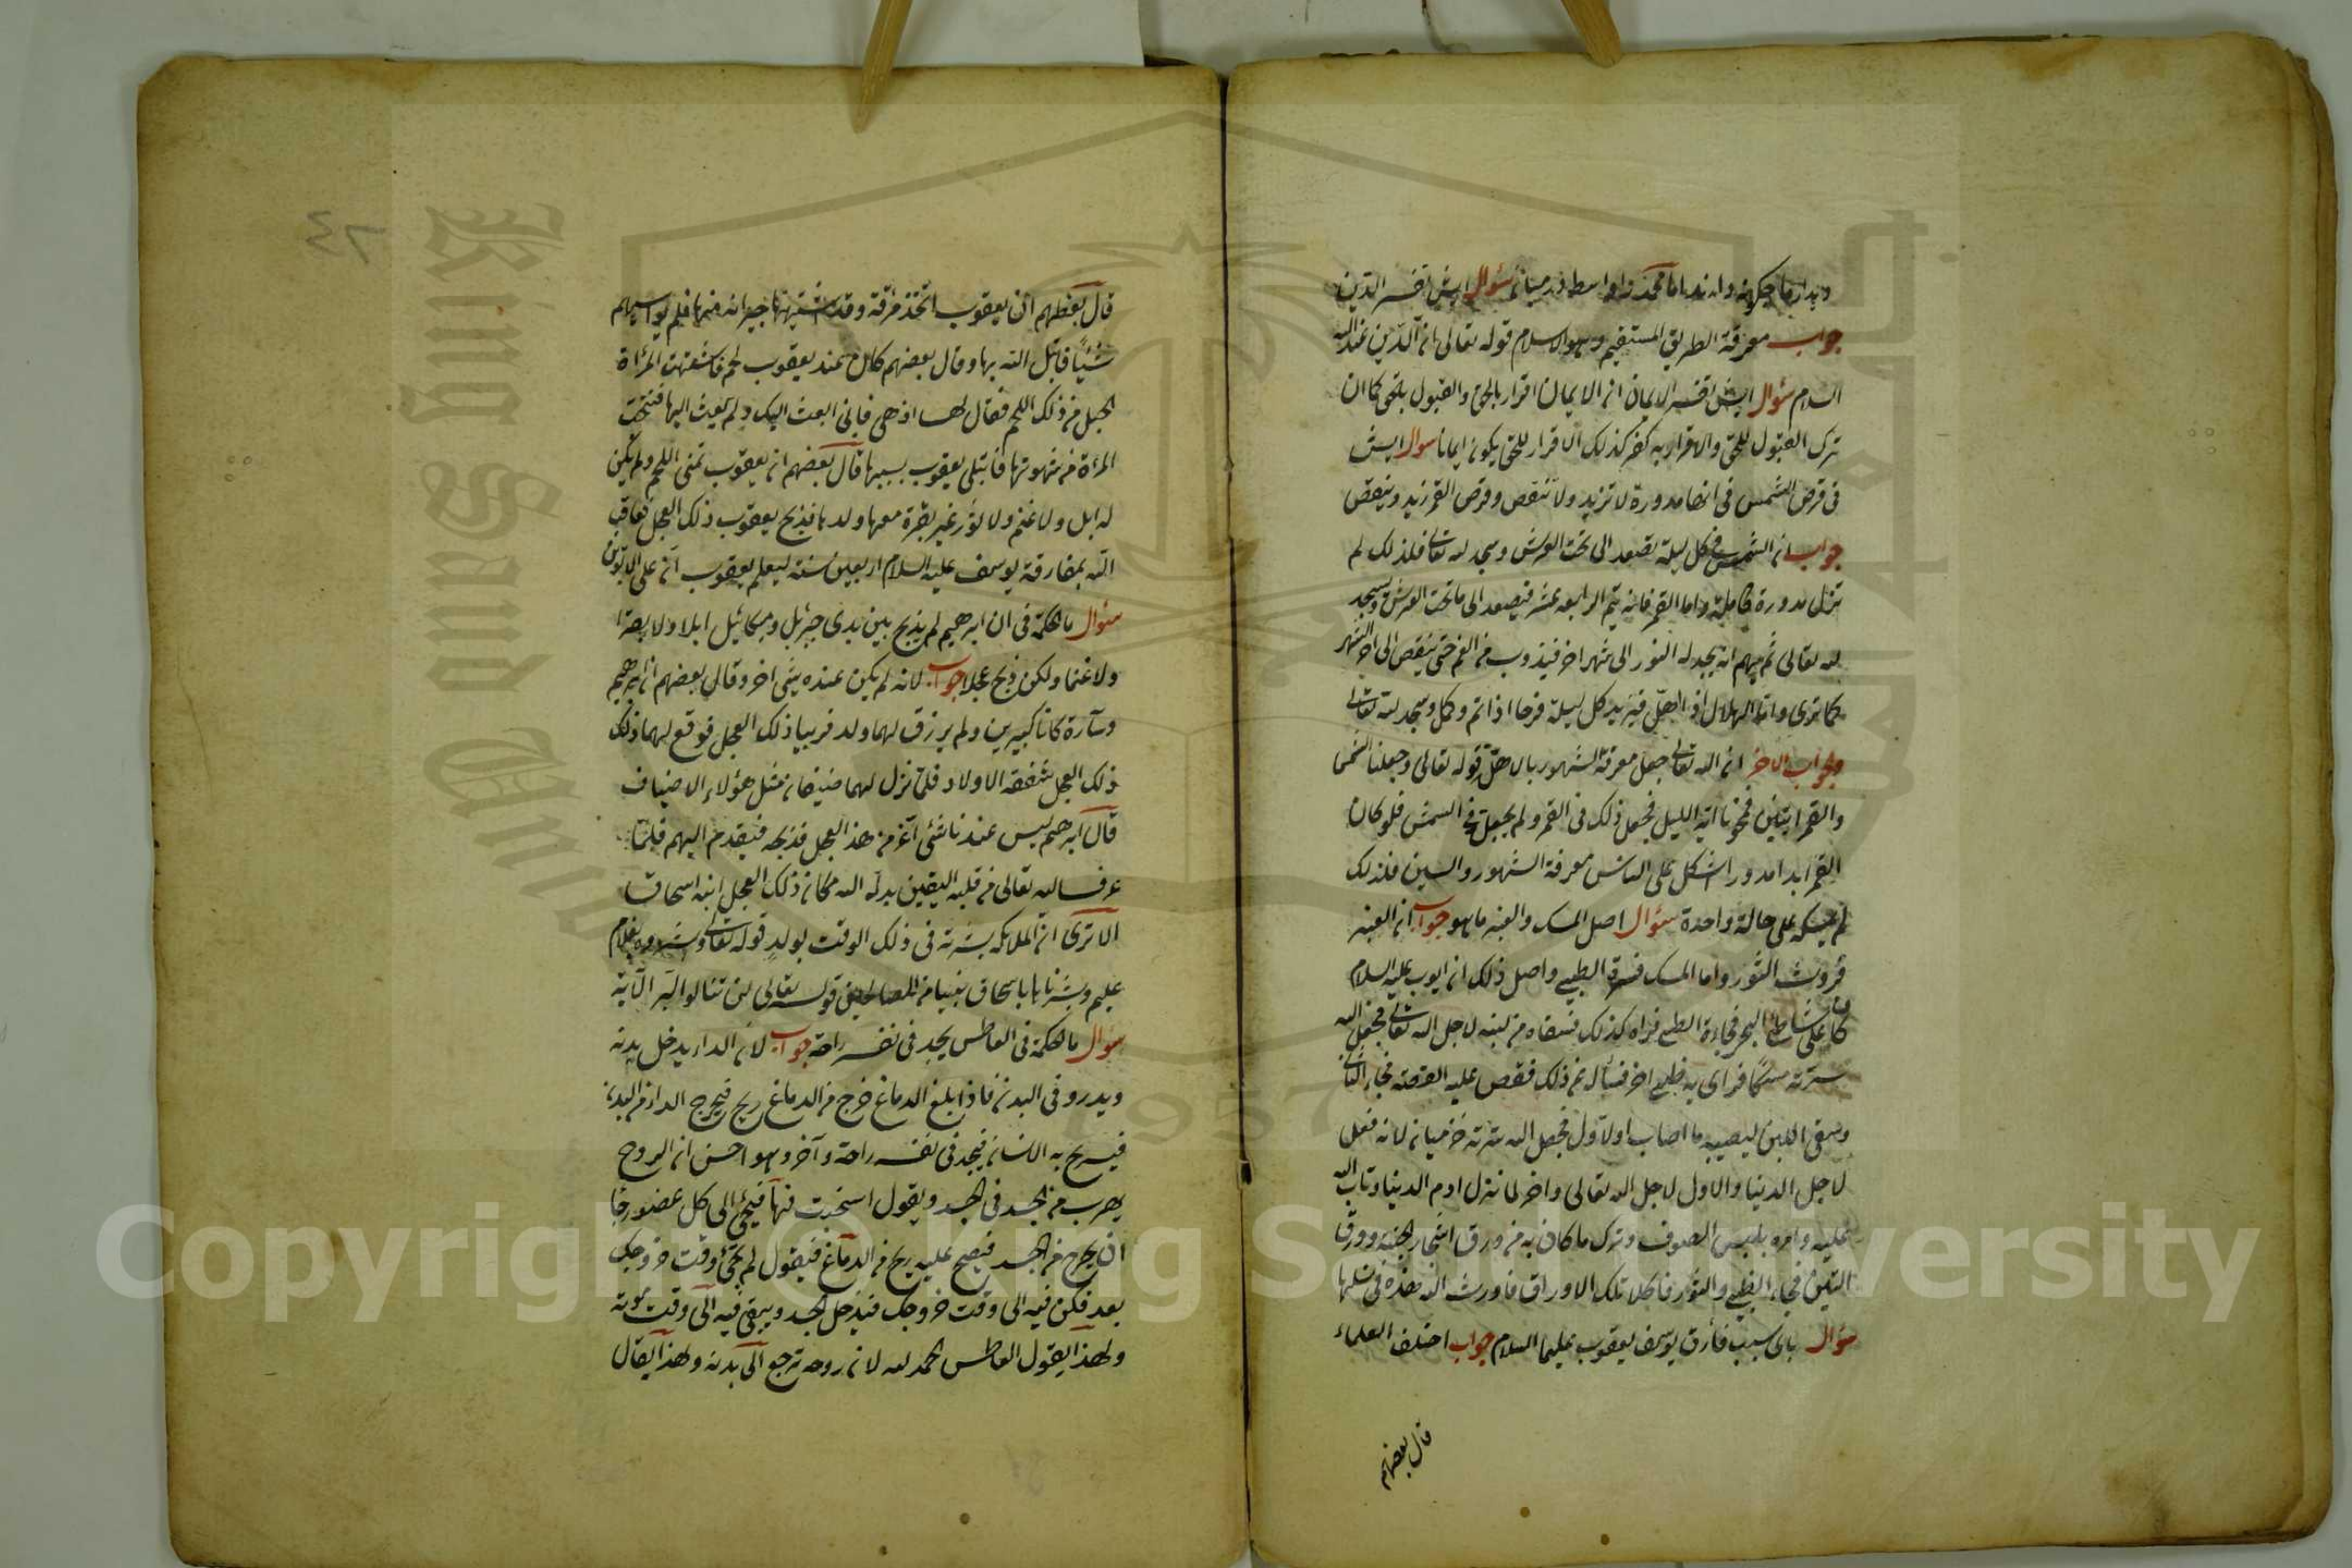 سؤال ايش تفسير الدين
جواب معرفة الطريق المستقيم وهو الاسلام قوله تعالى ان الدين عند الله
السلام سؤال ايش تفسير الايمان ان الايمان اقرار بالحق والقبول بالحق كما ان
ترك القبول للحق والاقرار به كفر كذلك الاقرار للحق يكون ايمانا سوال ايش
في قرص الشمس في انها مدورة لا تزيد ولا تنقص وقرص القمر زيد وينقص
جواب ان الشمس في كل ليلة تصعد الى تحت العرش وسجد لله تعالى فلذلك لم
تزل مدورة كاملة واما القمر فانه يتم الرابعه عشر فيصعد الى ما تحت العرش ويسجد
لله تعالى ثم انه يجد له النور الى شهر اخر فيذوب من الغم حتى ينقص الى اخر الشهر
كما ترى واما الهلال اذا فيزيد كل ليلة فرحا اذا تم وكمل وسجد لله تعالى
وجواب الاخر ان الله تعالى جعل معرفة الشهور بالاهلة قوله تعالى وجعلنا الشمس
والقمر ايتين فمحونا اية الليل فجعل ذلك في القمر ولم يجعل في الشمس فلو كان
القمر ابدا مدورا اشكل على الناس معرفة الشهور والسنين فلذلك
لم يمسكه على حالة واحدة سؤال اصل المسك والعنبر ما هو جواب ان العنبر
من روث الثور واما المسك فسرة الظبي واصل ذلك ان ايوب عليه السلام
كان على شاطئ البحر فجاءة الظبي فراه كذلك فسقاه من لبنه لاجل الله تعالى فجعل الله
سرته مسكا فراى به ظبي اخر فسأل من ذلك فقص عليه القصة فجاء الثاني
وسقى اللبن ليصيبه ما اصاب اولا ول فجعل الله سرته لانه فعل
لاجل الدنيا والاول لاجل الله تعالى واخر لما نزل ادم الدنيا وتاب الله
عليه وامره بلبس الصوف وترك ما كان به من ورق اشجار الجنة وورق
التين فجاء الظبي والثور فاكلا تلك الاوراق فاورث الله هذه في نسلها
سؤال باى سبب فأرق يوسف يعقوب عليهما السلام جواب اختلف العلماء
قال بعضهم
٢٤
قال بعضهم ان يعقوب اتخذ مرقة وقد اشتهتها جيرانه منها فلم يواسيهم
شيئا فابتلى الله بها وقال بعضهم كان عند يعقوب لحم فاشتهت المرأة
الحبلى من ذلك اللحم فقال لها اذهبى فانى ابعث اليك ولم يبعث اليها
المرأة من شهوتها فابتلى يعقوب بسببها قال بعضهم ان يعقوب تمنى اللحم ولم يكن
له ابل ولا غنم ولا ثور غير بقرة معها ولدها فذبح يعقوب ذلك العجل فعاقب
الله بمفارقة يوسف عليه السلام اربعين سنة ليعلم يعقوب ان على الابوين
سؤال ما الحكمة في ان ابرهيم لم يذبح بين يدى جبرئيل وميكائيل ابلا ولا بقرا
ولا غنما ولكن ذبح عجلا جواب لانه لم يكن عنده شئ اخر وقال بعضهم ان ابرهيم
وسارة كانا كبيرين ولم يرزق لهما ولد فربيا ذلك العجل فوقع لهما ذلك
ذلك العجل شفقة الاولاد فلما نزل لهما ضيفان مثل هؤلاء الاضياف
قال ابرهيم ليس عندنا شئ اعز من هذا العجل فذبحه فيقدم اليهم فلما
عرف الله تعالى من قلبه اليقين بدله الله مكان ذلك العجل ابنه اسحاق
الا ترى ان الملايكه بشرته في ذلك الوقت بولد قوله تعالى وبشروه بغلام
عليم وبشرناه باسحاق نبيا من الصالحين قوله تعالى لن تنالوا البر الآية
سؤال ما الحكمة في العاطس يجد في نفسه راحة جواب لان الداء يدخل بدنه
ويدور في البدن فاذا بلغ الدماغ خرج من الدماغ ريح فيخرج الداء من البدن
فيسريح به الانسان فيجد في نفسه راحة وآخر وهو احسن ان الروح
يهرب من الجسد في الجسد ويقول فيجئ الى كل عضو رجا
ان يخرج من الجسد فيصيح عليه ريح من الدماغ فيقول لم يجئ وقت خروجك
بعد فكن فيه الى وقت خروجك فيدخل الجسد ويبقى فيه الى وقت موته
ولهذا يقول العاطس الحمد لله لان روحه ترجع الى بدنه ولهذا يقال
King Saud University
1957
Copyright © King Saud University